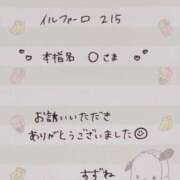 イルファーロ 215
本指名 〇さま
お誘いいただき
ありがとうございました☺
すずね